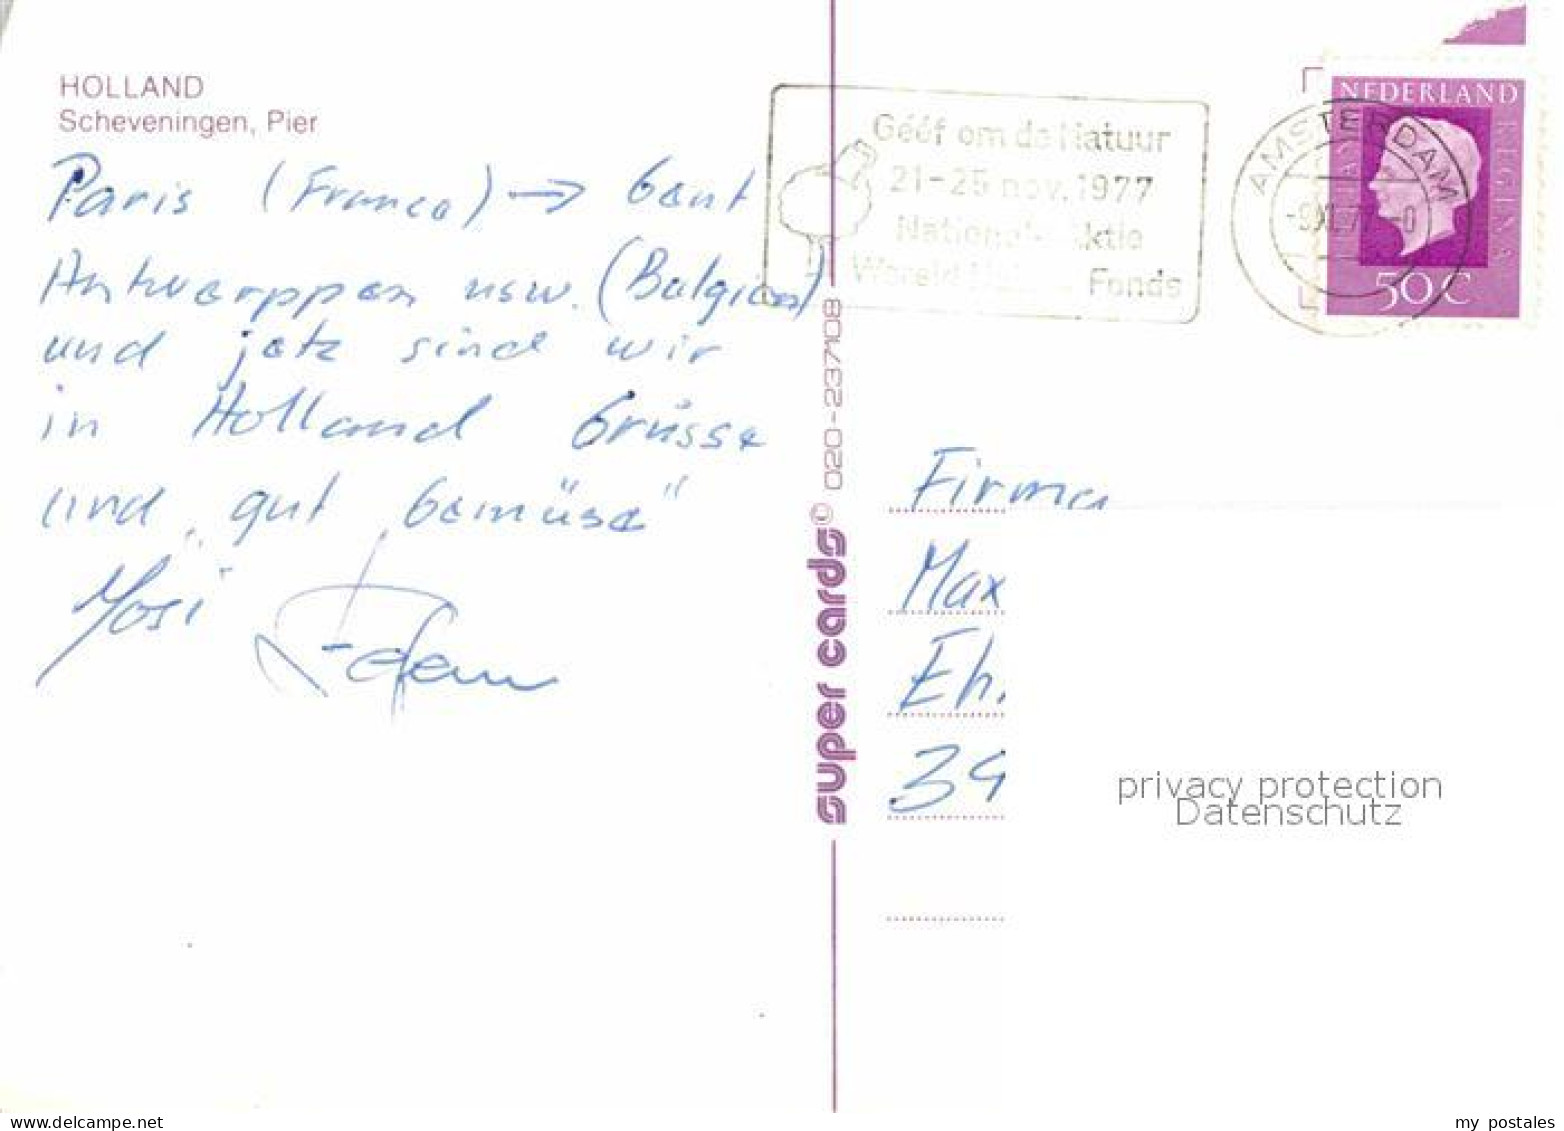 HOLLAND
Scheveningen, Pier
Paris (France) → Gent
Antwerppen usw. (Belgien)
und jetz sind wir
in Holland Grüsse
und „gut Gemüse"
Geéf om de Natuur
21-25 nov. 1977
Nationale Aktie
Wereld Fonds
AMSTERDAM
NEDERLAND
JULIANA REGINA
50 C
super cards © 020-237108
Firma
Max
Eh.
39
privacy protection
Datenschutz
www.delcampe.net
my postales